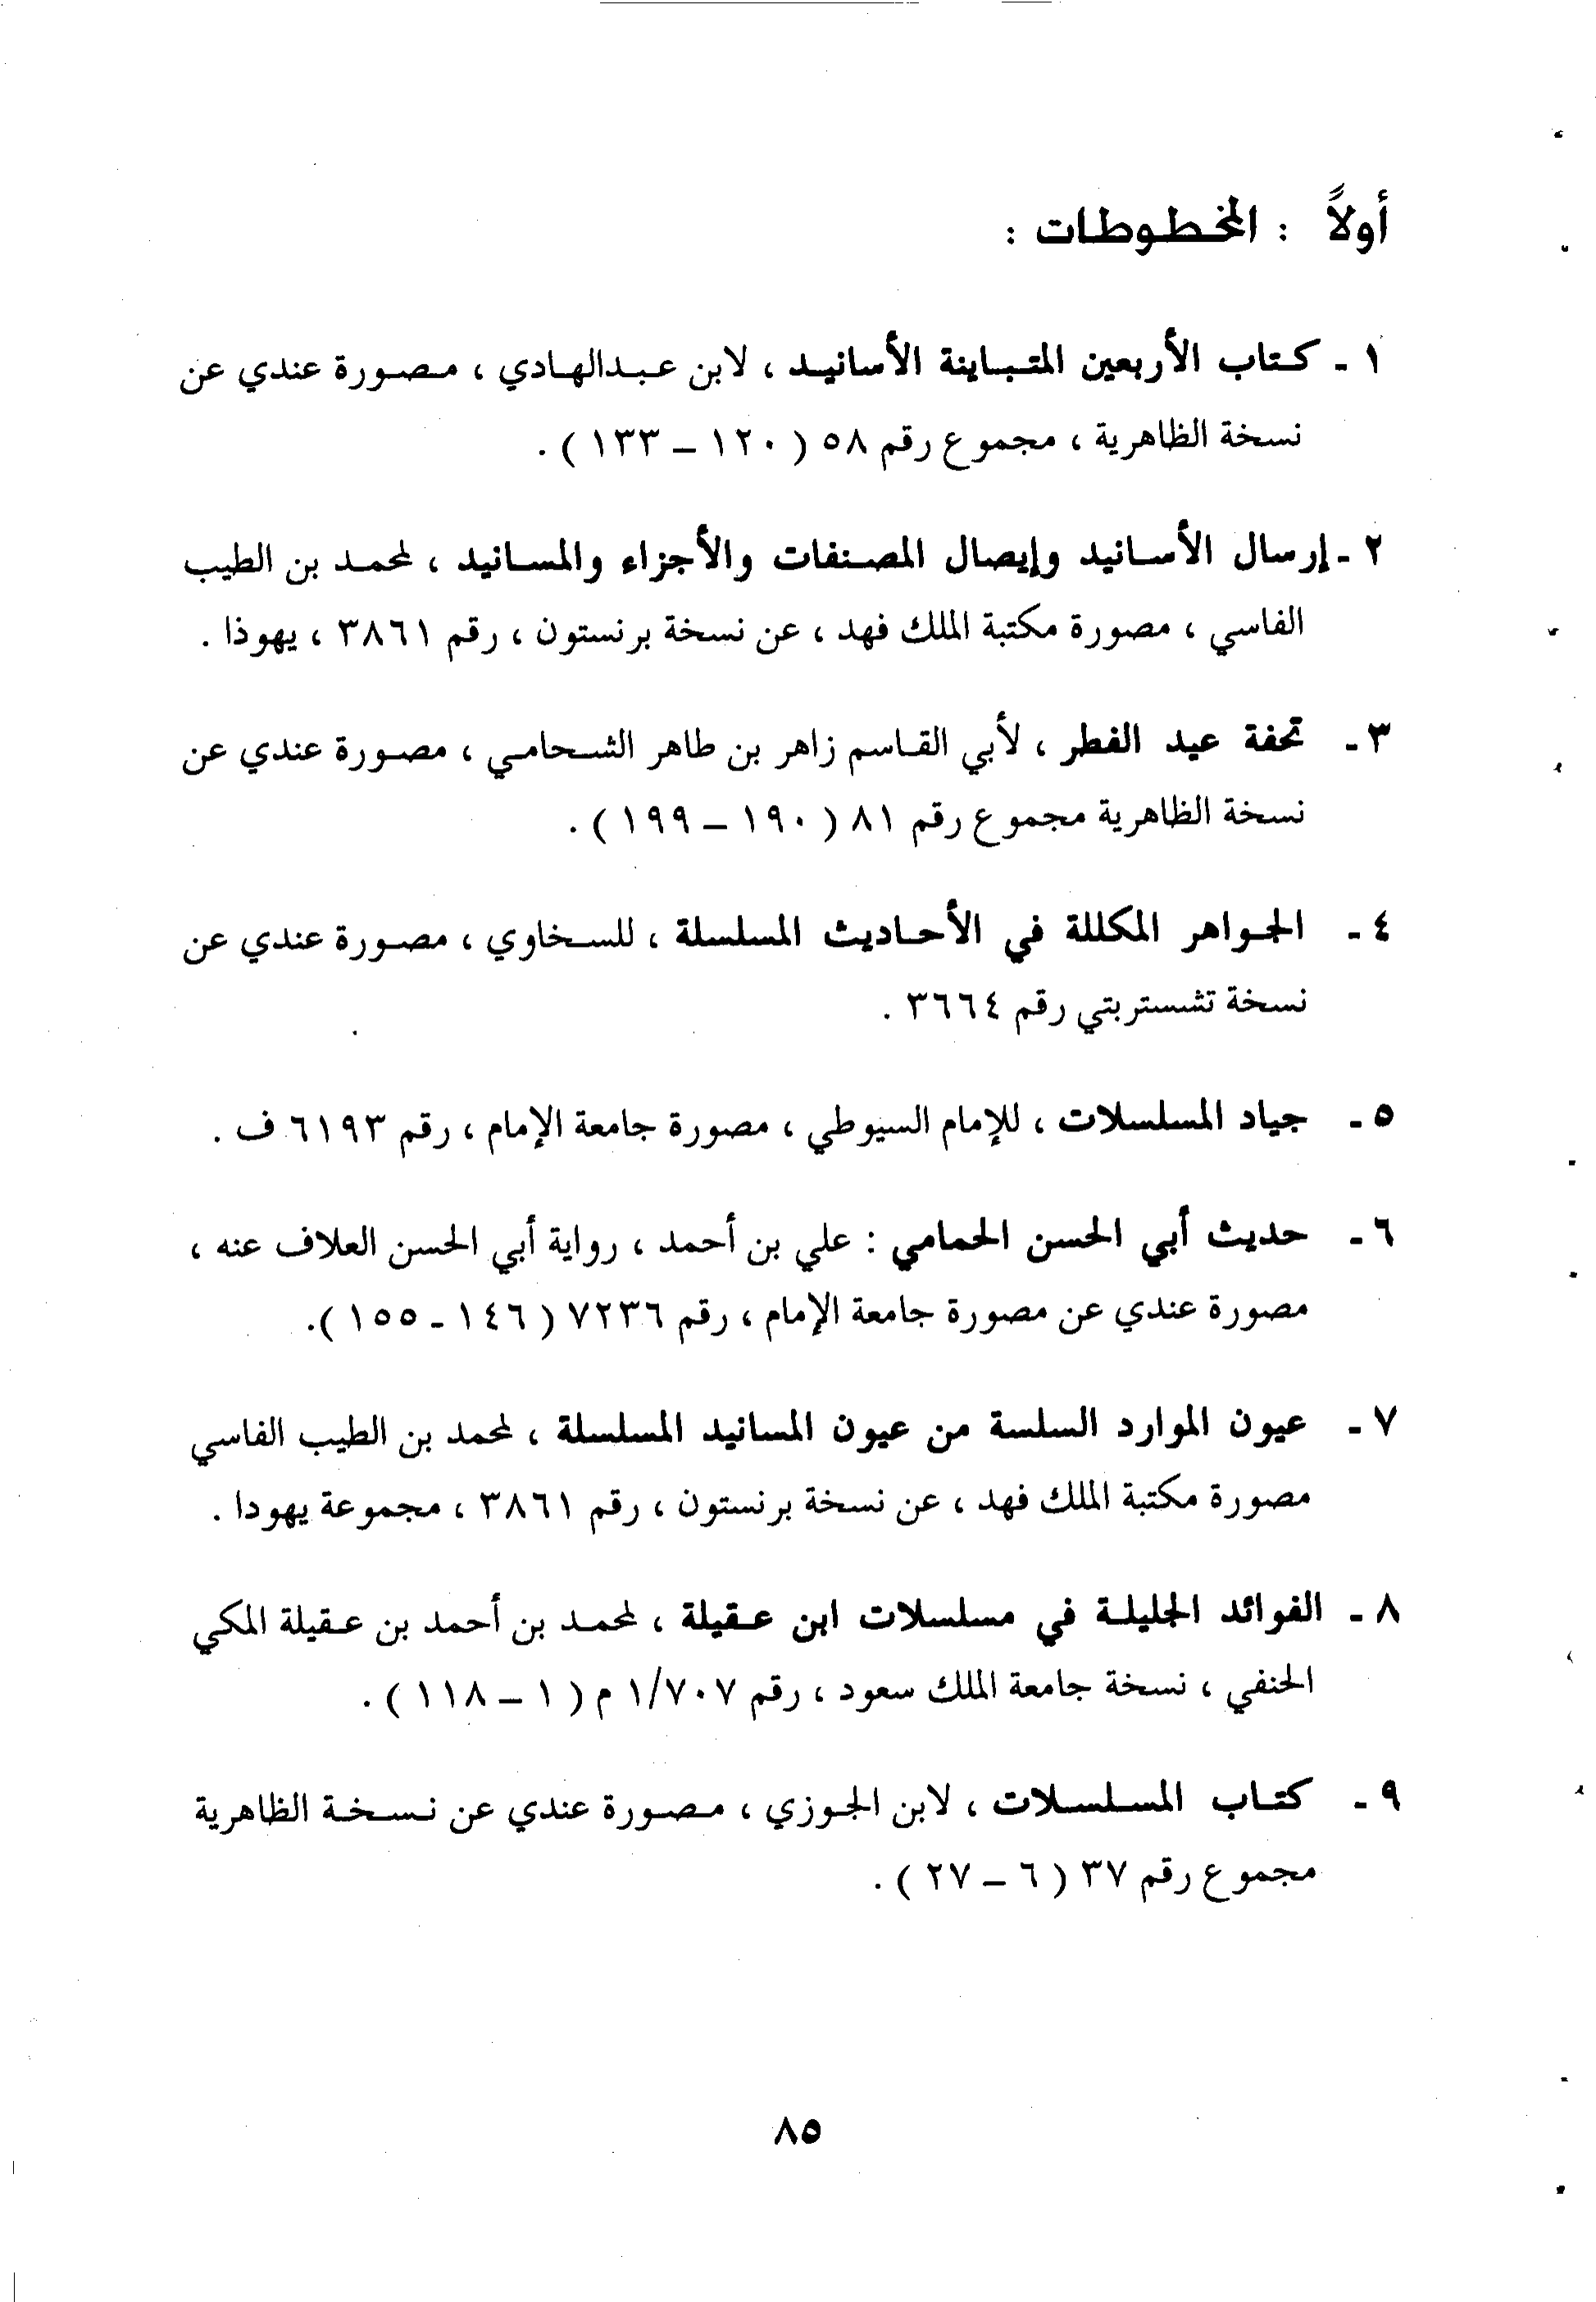 أولاً : المخطوطات :
١ - كتاب الأربعين المتباينة الأسانيد ، لابن عبدالهادي ، مصورة عندي عن
نسخة الظاهرية ، مجموع رقم ٥٨ ( ١٢٠ – ١٣٣ ) .
٢ - إرسال الأسانيد وإيصال المصنفات والأجزاء والمسانيد ، لمحمد بن الطيب
الفاسي ، مصورة مكتبة الملك فهد ، عن نسخة برنستون ، رقم ٣٨٦١ ، يهوذا .
٣ - تحفة عيد الفطر ، لأبي القاسم زاهر بن طاهر الشحامي ، مصورة عندي عن
نسخة الظاهرية مجموع رقم ٨١ ( ١٩٠ – ١٩٩ ) .
٤ - الجواهر المكللة في الأحاديث المسلسلة ، للسخاوي ، مصورة عندي عن
نسخة تشستربتي رقم ٣٦٦٤ .
٥ - جياد المسلسلات ، للإمام السيوطي ، مصورة جامعة الإمام ، رقم ٦١٩٣ ف .
٦ - حديث أبي الحسن الحمامي : علي بن أحمد ، رواية أبي الحسن العلاف عنه ،
مصورة عندي عن مصورة جامعة الإمام ، رقم ٧٢٣٦ ( ١٤٦ - ١٥٥ ).
٧ - عيون الموارد السلسة من عيون المسانيد المسلسلة ، لمحمد بن الطيب الفاسي
مصورة مكتبة الملك فهد ، عن نسخة برنستون ، رقم ٣٨٦١ ، مجموعة يهودا .
٨ - الفوائد الجليلة في مسلسلات ابن عقيلة ، لمحمد بن أحمد بن عقيلة المكي
الحنفي ، نسخة جامعة الملك سعود ، رقم ١/٧٠٧ م ( ١ – ١١٨ ) .
٩ - كتاب المسلسلات ، لابن الجوزي ، مصورة عندي عن نسخة الظاهرية
مجموع رقم ٣٧ ( ٦ – ٢٧ ) .
٨٥